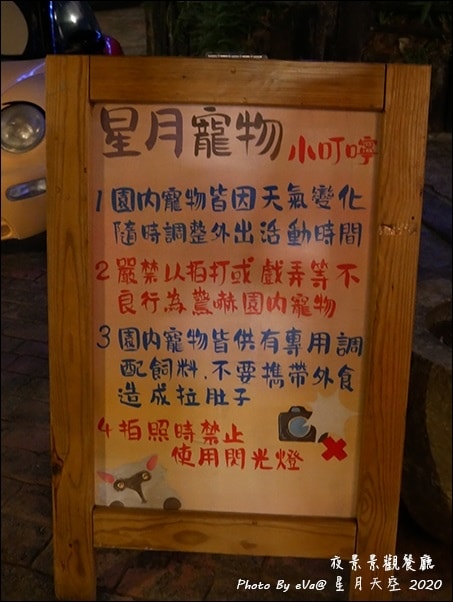 星月寵物 小叮嚀
1 園內寵物皆因天氣變化
隨時調整外出活動時間
2 嚴禁以拍打或戲弄等不
良行為驚嚇園內寵物
3 園內寵物皆供有專用調
配飼料.不要攜帶外食
造成拉肚子
4 拍照時禁止
使用閃光燈
夜景景觀餐廳
Photo By eVa@ 星月天空 2020